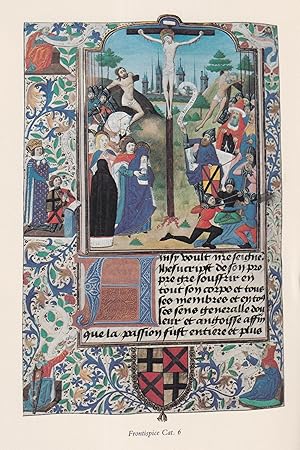 Insy voult me seigne
Jhesucrist de son pro
pre gre souffrir en
tout son corps et tous
ses membres et en to9
ses sens generalle dou
leur et angoisse affin
que la passion fust entiere et plus
Frontispice Cat. 6